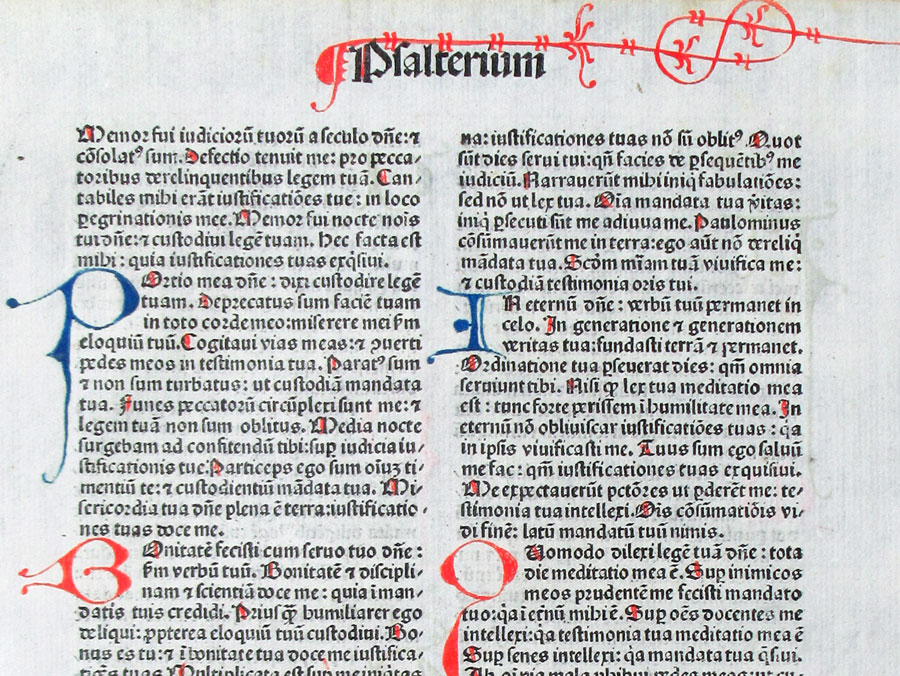 Psalterium
Memor fui iudiciorū tuorū a seculo dn̄e: ⁊
cōsolatꝰ sum. Defectio tenuit me: pro pecca⸗
toribus derelinquentibus legem tuā. Can⸗
tabiles mihi erāt iustificatiōes tue: in loco
peregrinationis mee. Memor fui nocte noīs
tui dn̄e: ⁊ custodiui legē tuam. Hec facta est
mihi: quia iustificationes tuas exq̄siui.
POrtio mea dn̄e: dixi custodire legē
tuam. Deprecatus sum faciē tuam
in toto corde meo: miserere mei ẜm
eloquiū tuū. Cogitaui vias meas: ⁊ ꝯuerti
pedes meos in testimonia tua. Paratꝰ sum
⁊ non sum turbatus: ut custodiā mandata
tua. Funes peccatorū circūplexi sunt me: ⁊
legem tuā non sum oblitus. Media nocte
surgebam ad confitendū tibi: suꝑ iudicia iu⸗
stificationis tue. Particeps ego sum oīuꝫ ti⸗
mentiū te: ⁊ custodientiū mādata tua. Mi⸗
sericordia tua dn̄e plena ē terra: iustificatio⸗
nes tuas doce me.
BOnitatē fecisti cum seruo tuo dn̄e:
ẜm verbū tuū. Bonitatē ⁊ discipli⸗
nam ⁊ scientiā doce me: quia ī man⸗
datis tuis credidi. Priusꝙ̄ humiliarer ego
deliqui: ꝓpterea eloquiū tuū custodiui. Bo⸗
nus es tu: ⁊ ī bonitate tua doce me iustifica⸗
tiōes tuas Multiplicata est suꝑ me iniqtas
na: iustificationes tuas nō sū oblitꝰ. Quot
sūt dies serui tui: qn̄ facies de ꝑsequētibꝰ me
iudiciū. Narrauerūt mihi iniq fabulatiōes:
sed nō ut lex tua. Oīa mandata tua ꝟitas:
iniq ꝑsecuti sūt me adiuua me. Paulominus
cōsūmauerūt me in terra: ego aūt nō dereliq
mādata tua. Scd̄m mīam tuā viuifica me:
⁊ custodiā testimonia oris tui.
IN eternū dn̄e: verbū tuū permanet in
celo. In generatione ⁊ generationem
veritas tua: fundasti terrā ⁊ permanet.
Ordinatione tua ꝑseuerat dies: qm̄ omnia
seruiunt tibi. Nisi ꝙ lex tua meditatio mea
est: tunc forte perissem ī humilitate mea. In
eternū nō obliuiscar iustificatiōes tuas: qa
in ipsis viuificasti me. Tuus sum ego saluū
me fac: qm̄ iustificationes tuas exquisiui.
Me expectauerūt pctōres ut ꝑderēt me: te⸗
stimonia tua intellexi. Ois cōsūmatiōis vi⸗
di finē: latū mandatū tuū nimis.
QUomodo dilexi legē tuā dn̄e: tota
die meditatio mea ē. Suꝑ inimicos
meos prudentē me fecisti mandato
tuo: qa ī et̄nū mihi ē. Suꝑ oēs docentes me
intellexi: qa testimonia tua meditatio mea ē
Suꝑ senes intellexi: qa mandata tua q̄siui.
Ab oī via mala ꝓhibui pedes meos: ut cu⸗